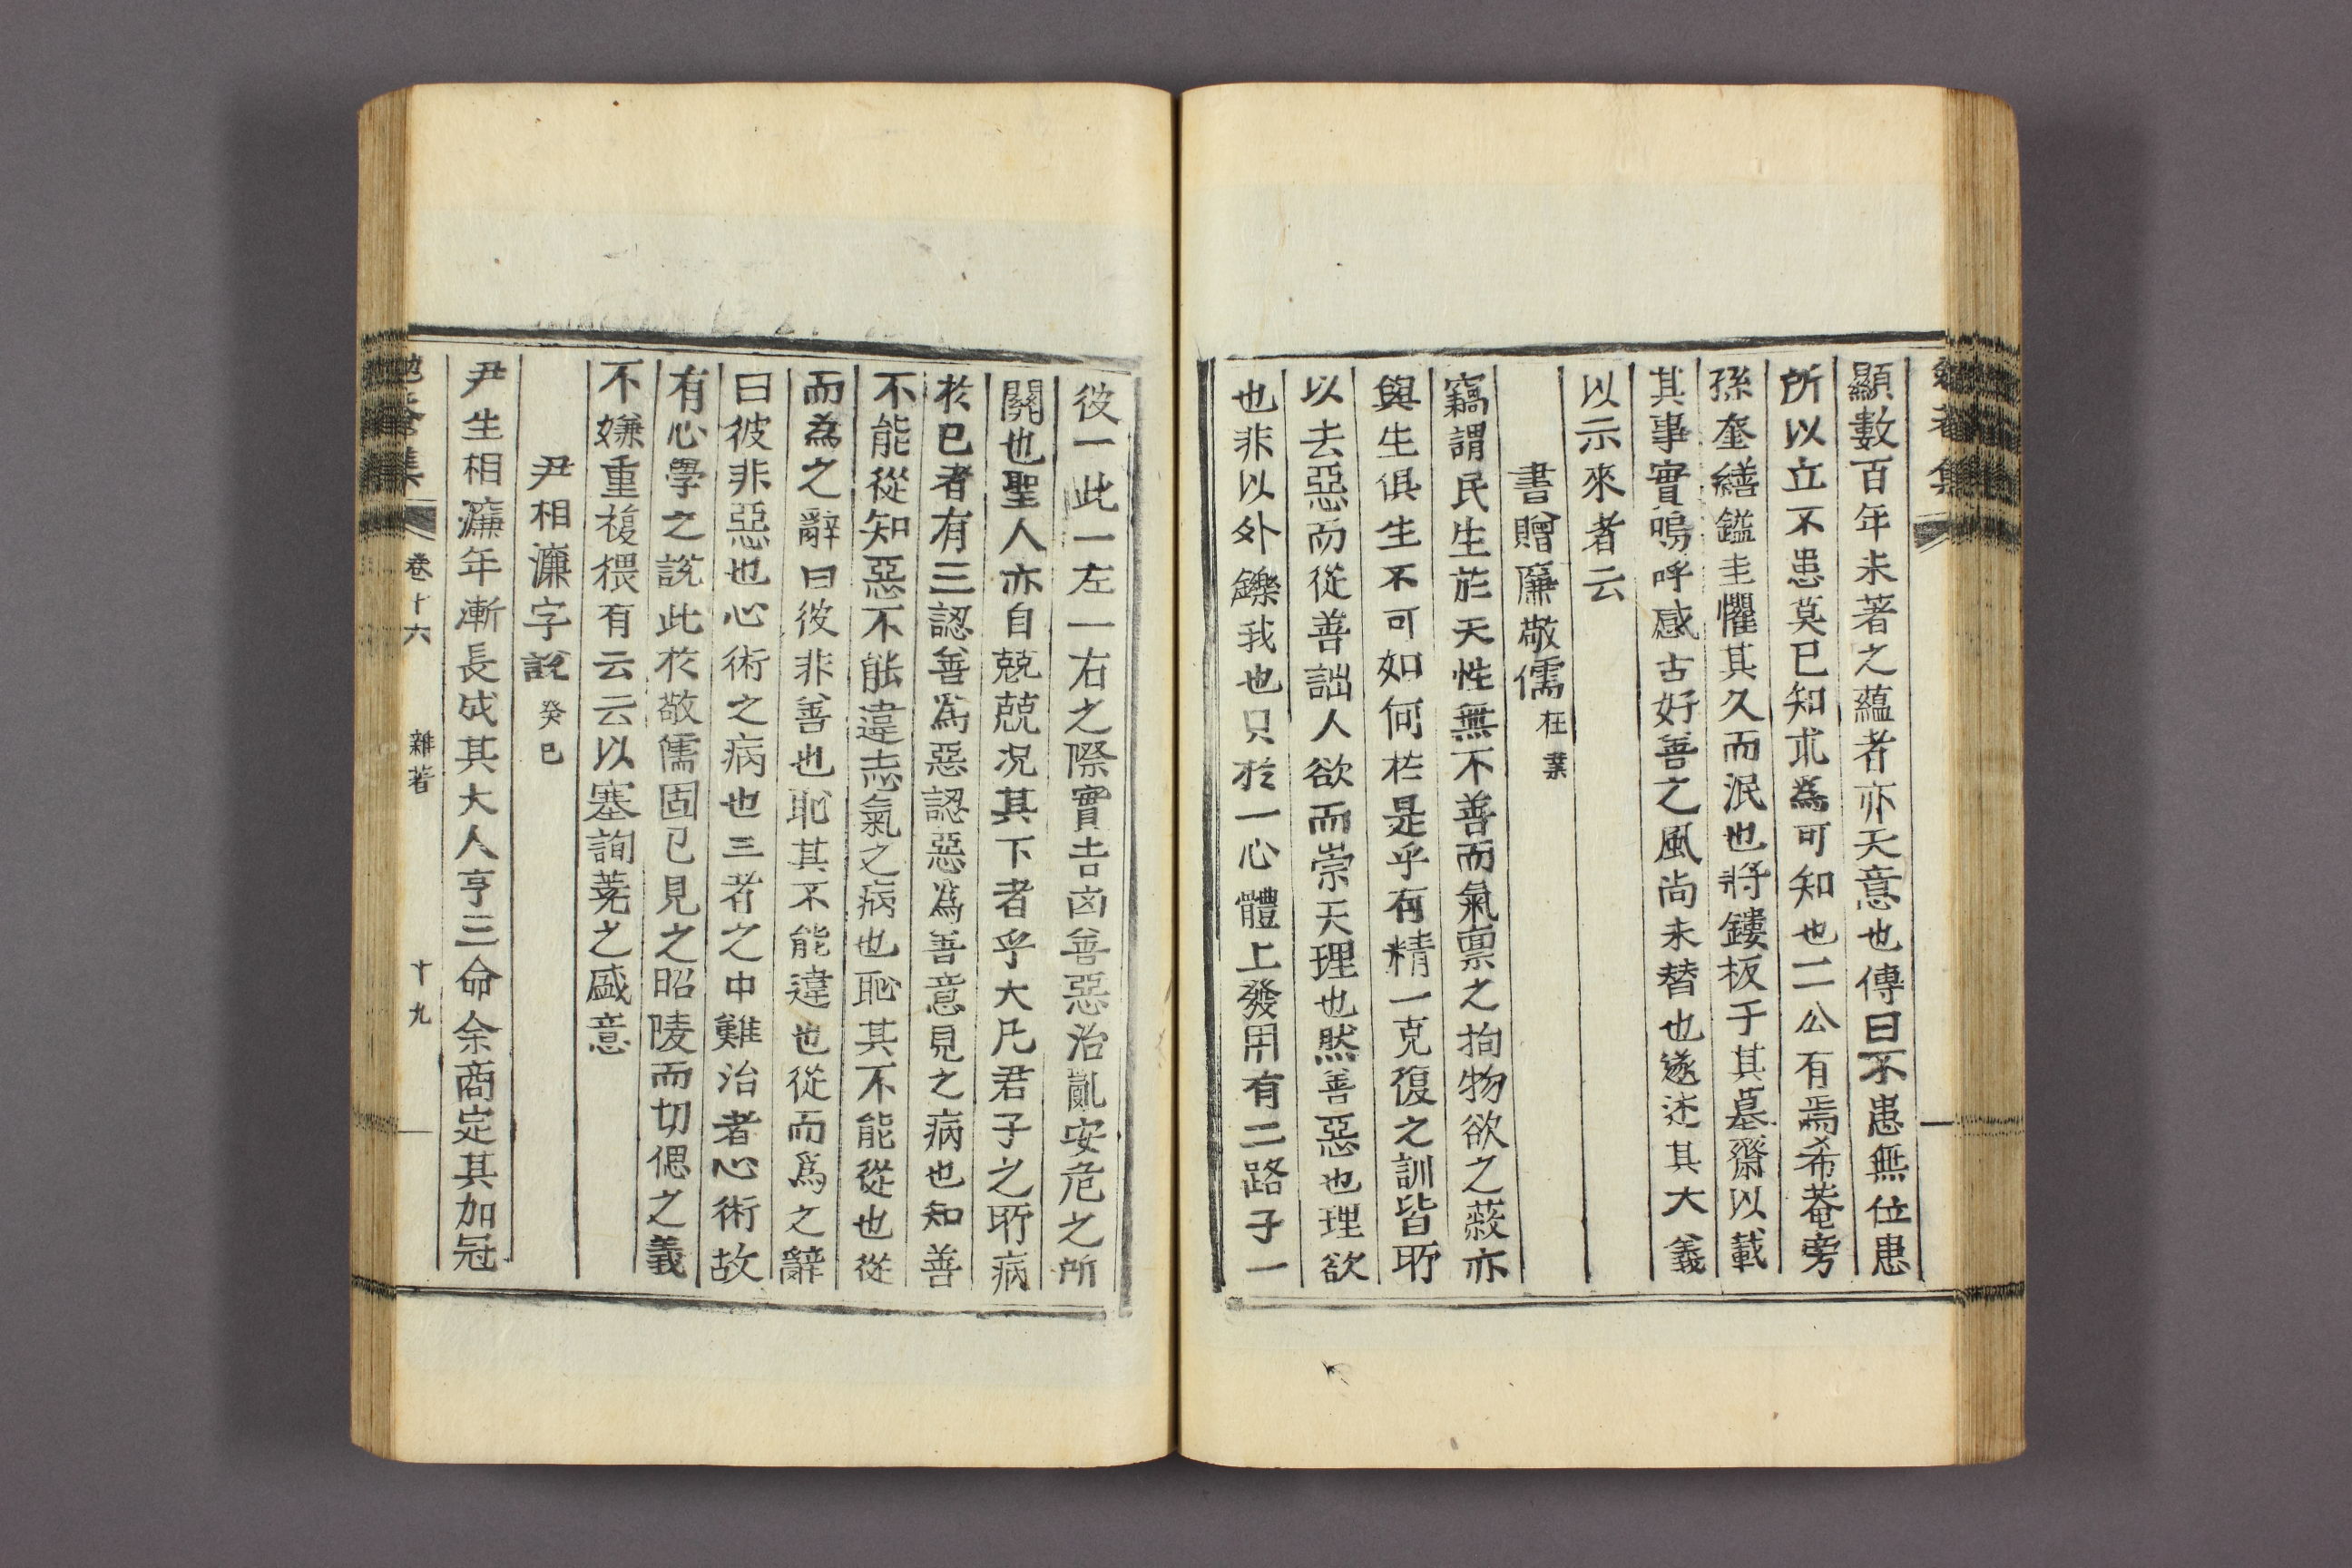 顯數百年未著之蘊者亦天意也傳曰不患無位患
所以立不患莫己知求爲可知也二公有焉希菴旁
孫奎繕鎰圭懼其久而泯也將鏤板于其墓齋以載
其事實嗚呼感古好善之風尚未替也遂述其大義
以示來者云
書贈廉敬儒 在業
竊謂民生於天性無不善而氣稟之拘物欲之蔽亦
與生俱生不可如何於是乎有精一克復之訓皆所
以去惡而從善詘人欲而崇天理也然善惡也理欲
也非以外鑠我也只於一心體上發用有二路子一
彼一此一左一右之際實吉凶善惡治亂安危之所
關也聖人亦自兢兢況其下者乎大凡君子之所病
於己者有三認善爲惡認惡爲善意見之病也知善
不能從知惡不能違志氣之病也恥其不能從也從
而爲之辭曰彼非善也恥其不能違也從而爲之辭
曰彼非惡也心術之病也三者之中難治者心術故
有心學之說此於敬儒固已見之昭陵而切偲之義
不嫌重複猥有云云以塞詢蕘之盛意
尹相濂字說 癸巳
尹生相濂年漸長成其大人亨三命余商定其加冠
卷十六 雜著 十九